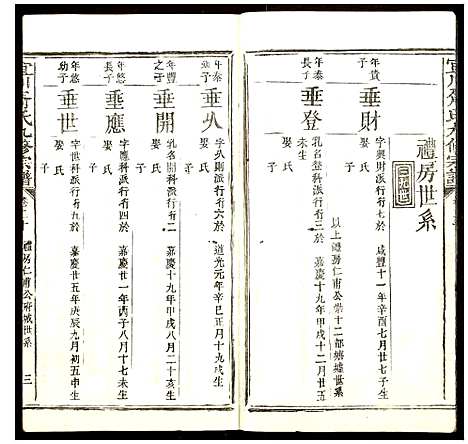 禮房世系
年貴長子
垂財
字興財派行有七於
咸豐十一年辛酉七月七日戌生
娶 氏
子
以上禮房仁甫公崇十二都塘墟世系
年泰長子
垂登
乳名登科派行有三於
嘉慶十九年甲戌十二月十五日未生
娶 氏
子
年泰幼子
垂久
字久則派行有六於
道光元年辛巳正月十九戌生
娶 氏
子
年豐之子
垂開
乳名開科派行有二
嘉慶十九年甲戌八月二十亥生
娶 氏
子
年悠長子
垂應
字應科派行有四於
嘉慶廿一年丙子八月十七未生
娶 氏
子
年悠幼子
垂世
字世科派行有九於
嘉慶廿五年庚辰九月初五申生
娶 氏
子
宜川齊氏九修宗譜
禮房仁甫公府城世系
三